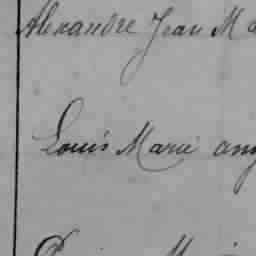 Alexandre Jean M
Louis Marie ang